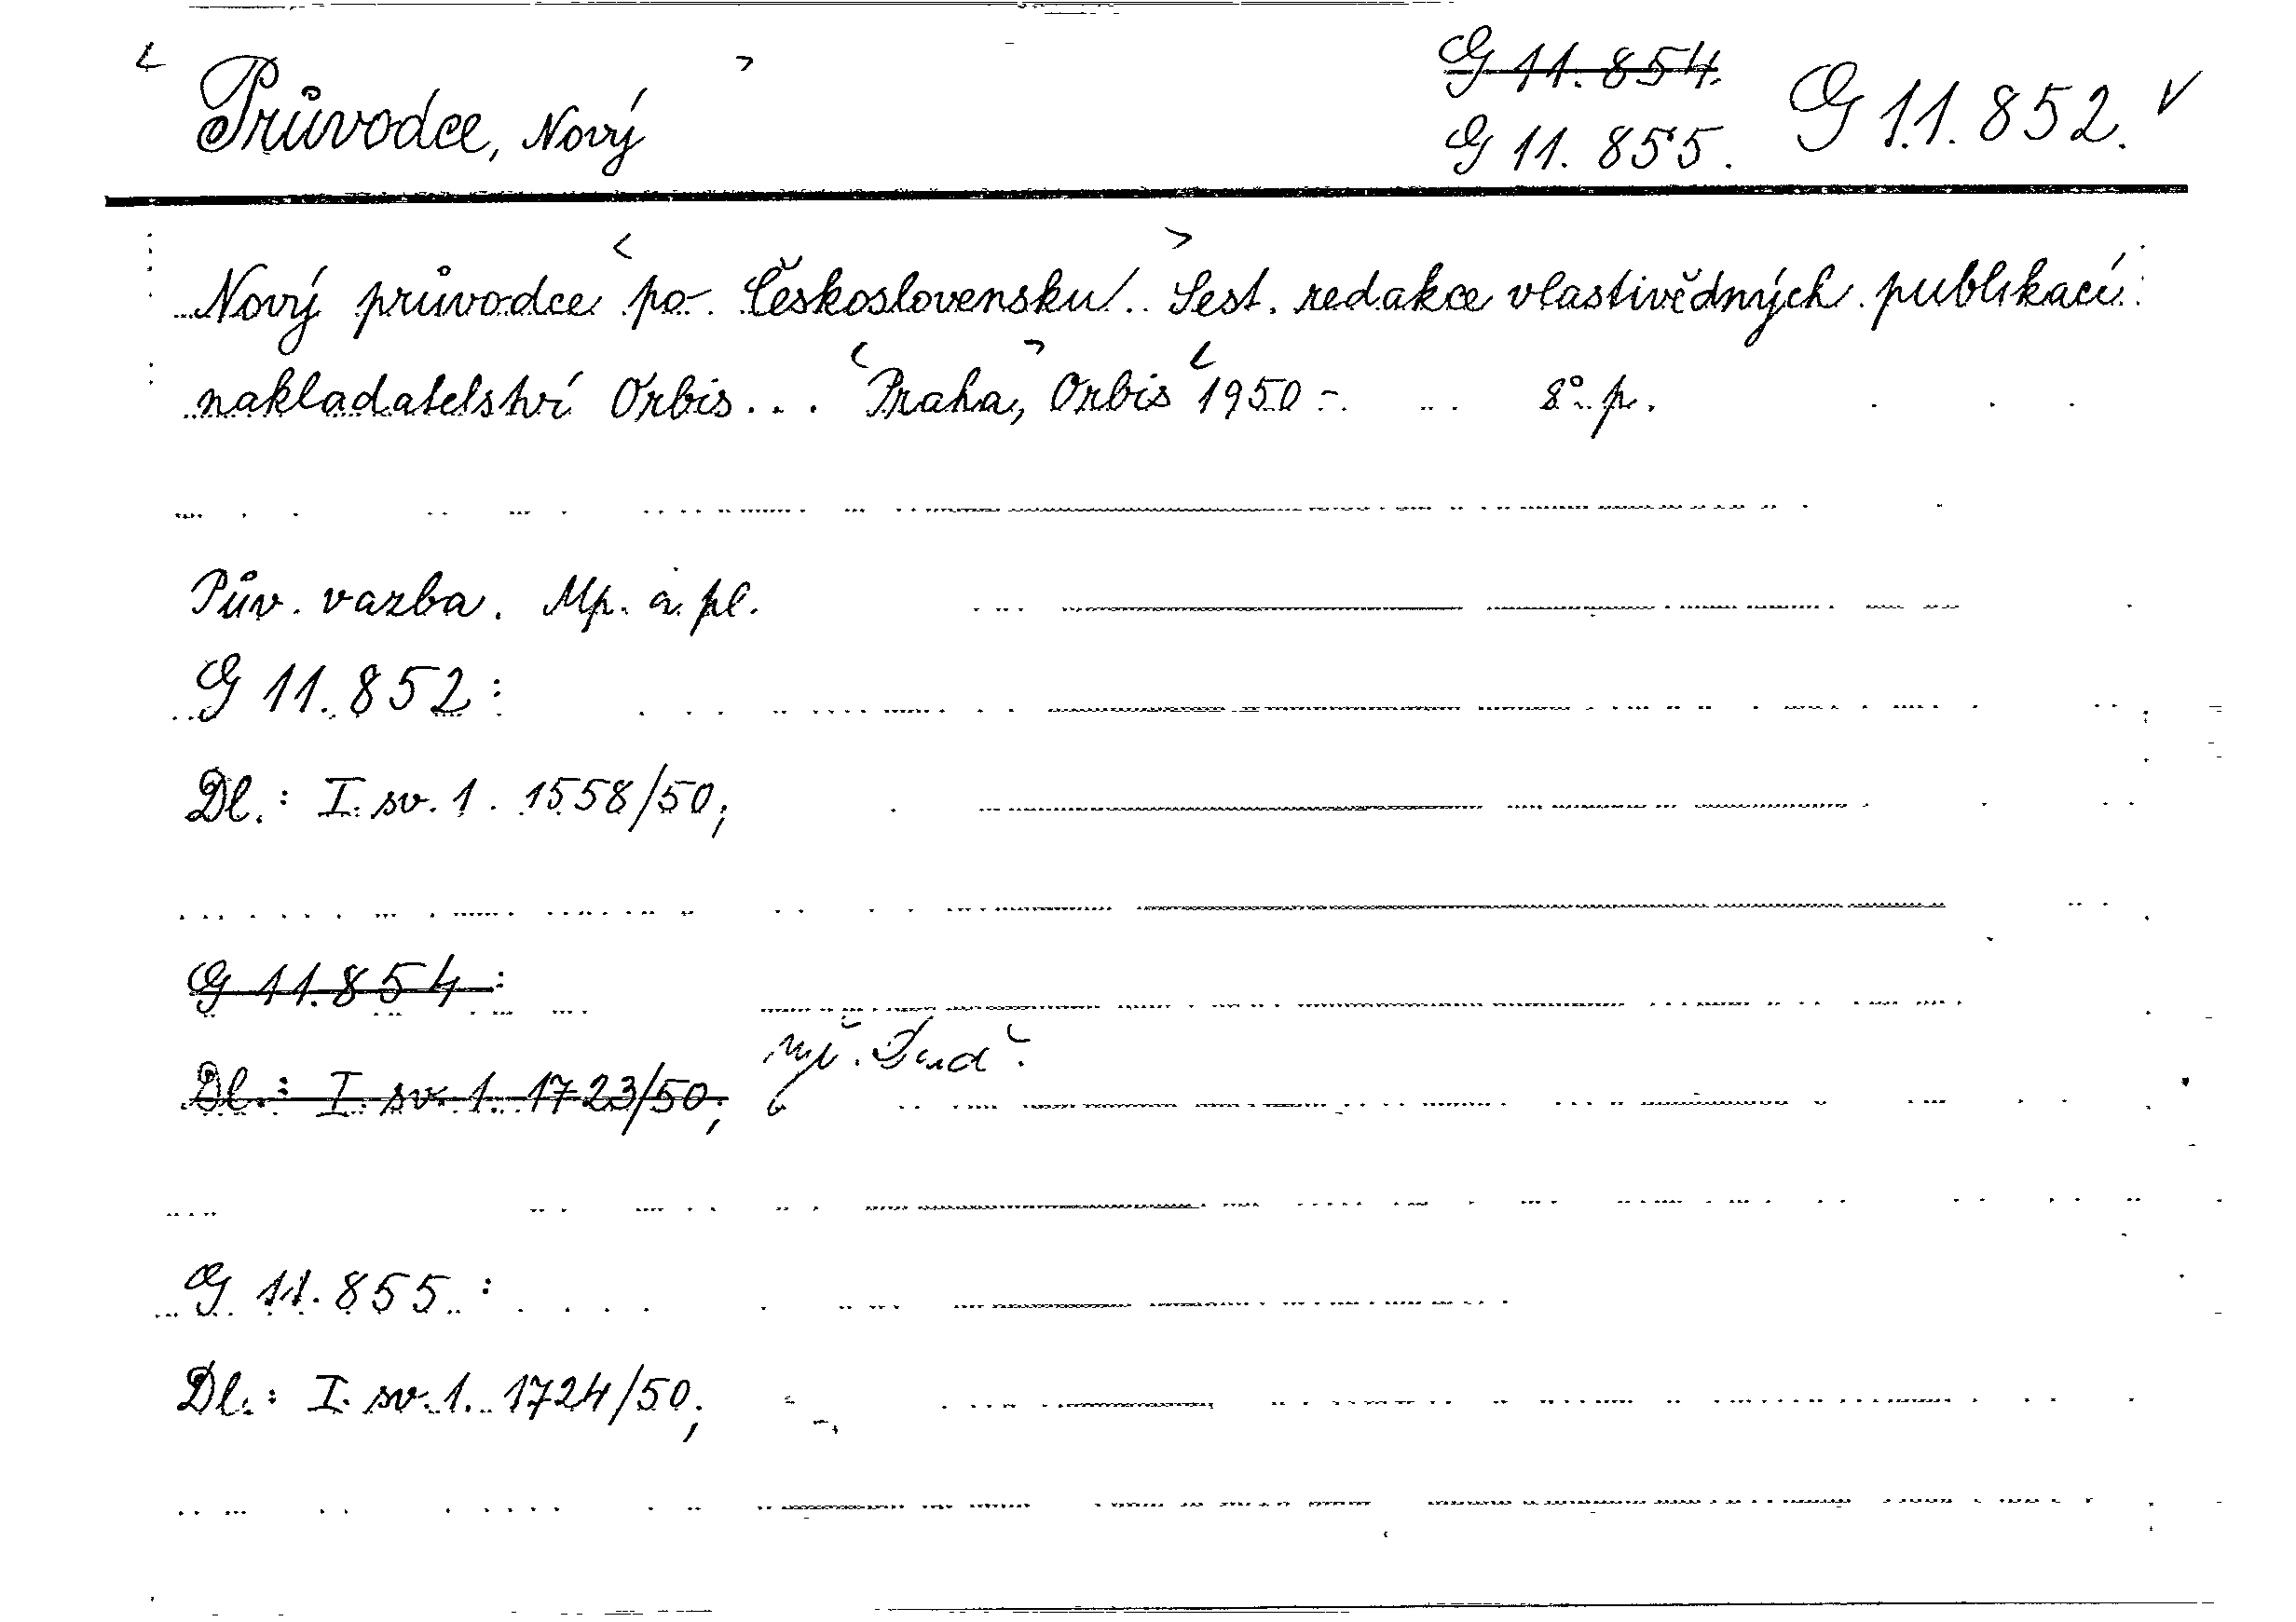 Průvodce, Nový
G 11.854.
G 11.855.
G 11.852.
Nový průvodce po Československu. Sest. redakce vlastivědných publikací
nakladatelství Orbis... Praha, Orbis 1950 -. 8° p.
Pův. vazba. Mp. a pl.
G 11.852:
Dl.: I. sv. 1. 1558/50;
G 11.854:
Dl.: I. sv. 1. 1723/50;
G 11.855:
Dl.: I. sv. 1. 1724/50;